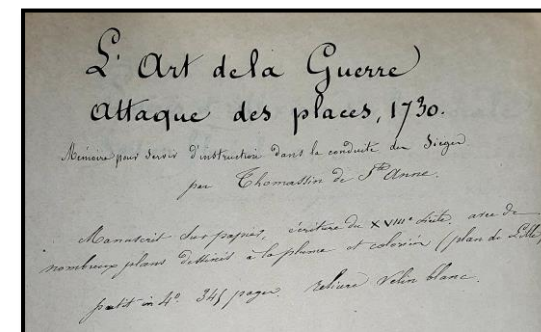 L'Art de la Guerre
attaque des places, 1730.
Mémoire pour servir d'instruction dans la conduite des Sièges
par Thomassin de Ste Anne.
Manuscrit sur papier, écriture du XVIIIe siècle, avec de
nombreux plans dessinés à la plume et coloriés (plan de Lille)
petit in 4o. 345 pages. Reliure Velin blanc.